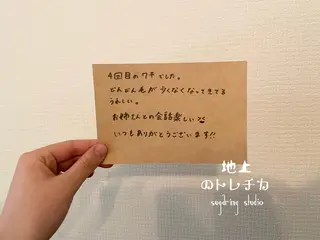 4回目のワキでした。
どんどん毛が少くなくなってきてる
うれしい。
お姉さんとの会話楽しい
いつもありがとうございます!!
地上
のトレチカ
sugdring studio